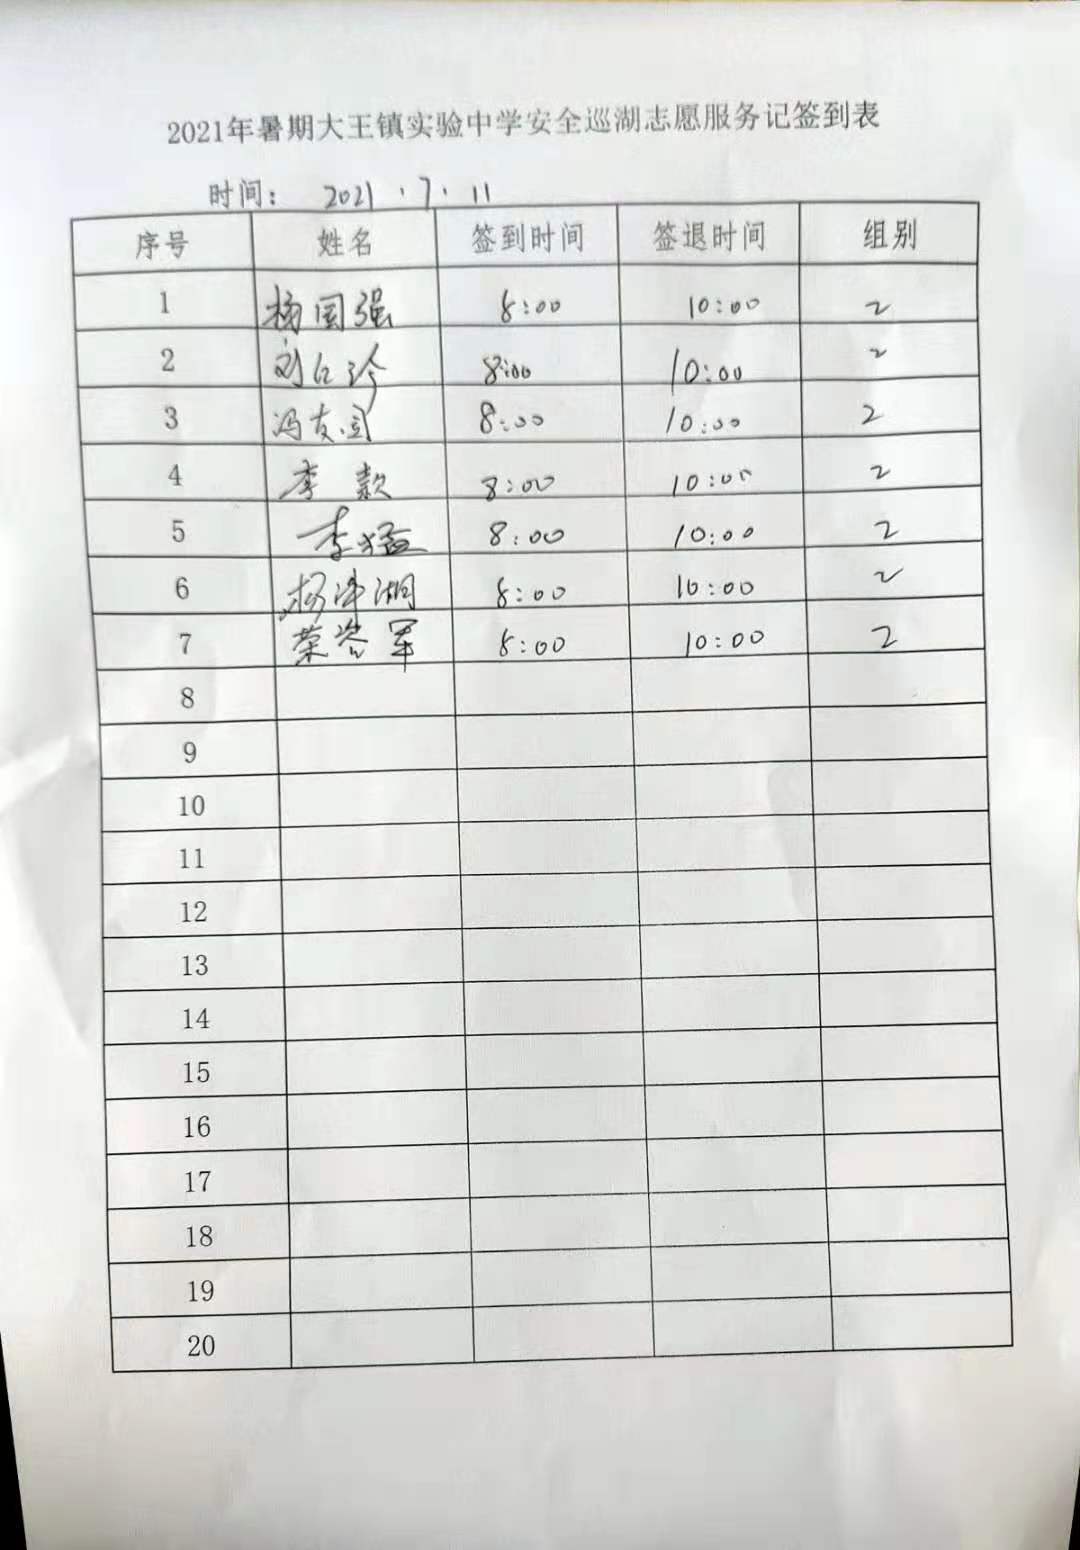 2021年暑期大王镇实验中学安全巡湖志愿服务记签到表
时间： 2021.7.11
序号 姓名 签到时间 签退时间 组别
1 杨国强 8:00 10:00 2
2 刘 8:00 10:00 2
3 冯友国 8:00 10:00 2
4 李款 8:00 10:00 2
5 李猛 8:00 10:00 2
6 杨 湖 8:00 10:00 2
7 荣 军 8:00 10:00 2
8
9
10
11
12
13
14
15
16
17
18
19
20